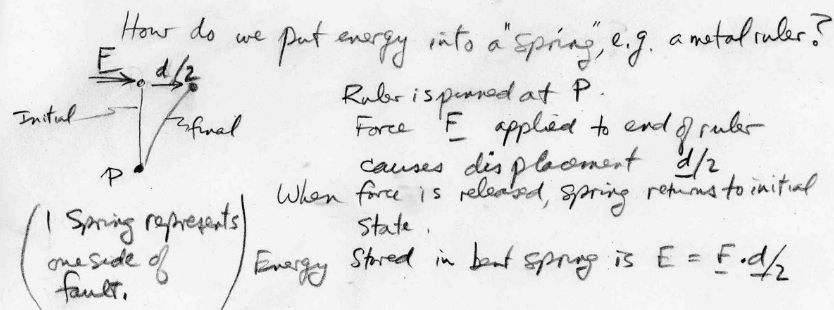 How do we put energy into a "spring", e.g. a metal ruler?
F d/2
Initial
final
P
Ruler is pinned at P.
Force F applied to end of ruler
causes displacement d/2
When force is released, spring returns to initial
State.
(1 Spring represents
one side of
fault.)
Energy Stored in bent spring is E = F · d/2